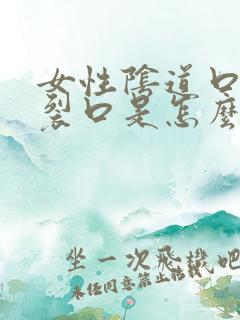 女性陰道口
裂口是怎麼
坐一次飛機吧
未經同意禁止轉載